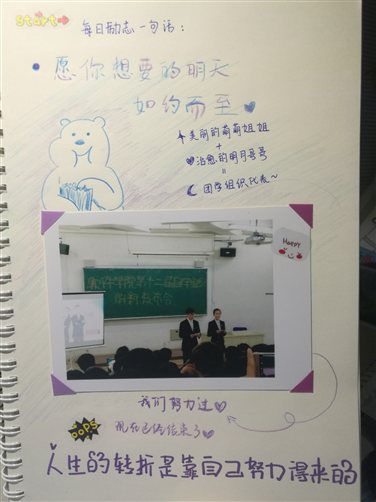 Start
每日励志一句话：
愿你想要的明天
如约而至
美丽的萌萌姐姐
+
治愈的明月哥哥
=
团学组织代表~
Happy
我们努力过
POPS
现在已经结束了
人生的转折是靠自己努力得来的